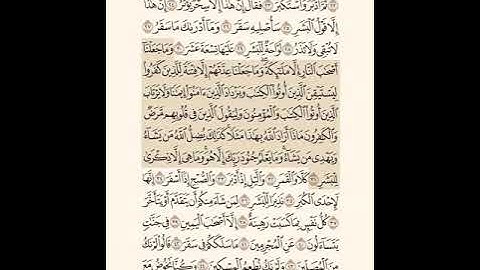 ثُمَّ أَدْبَرَ وَٱسْتَكْبَرَ ٢٣ فَقَالَ إِنْ هَٰذَآ إِلَّا سِحْرٌ يُؤْثَرُ ٢٤ إِنْ هَٰذَآ
إِلَّا قَوْلُ ٱلْبَشَرِ ٢٥ سَأُصْلِيهِ سَقَرَ ٢٦ وَمَآ أَدْرَىٰكَ مَا سَقَرُ ٢٧
لَا تُبْقِى وَلَا تَذَرُ ٢٨ لَوَّاحَةٌ لِّلْبَشَرِ ٢٩ عَلَيْهَا تِسْعَةَ عَشَرَ ٣٠ وَمَا جَعَلْنَآ
أَصْحَٰبَ ٱلنَّارِ إِلَّا مَلَٰٓئِكَةً وَمَا جَعَلْنَا عِدَّتَهُمْ إِلَّا فِتْنَةً لِّلَّذِينَ كَفَرُوا۟
لِيَسْتَيْقِنَ ٱلَّذِينَ أُوتُوا۟ ٱلْكِتَٰبَ وَيَزْدَادَ ٱلَّذِينَ ءَامَنُوٓا۟ إِيمَٰنًا وَلَا يَرْتَابَ
ٱلَّذِينَ أُوتُوا۟ ٱلْكِتَٰبَ وَٱلْمُؤْمِنُونَ وَلِيَقُولَ ٱلَّذِينَ فِى قُلُوبِهِم مَّرَضٌ
وَٱلْكَٰفِرُونَ مَاذَآ أَرَادَ ٱللَّهُ بِهَٰذَا مَثَلًا كَذَٰلِكَ يُضِلُّ ٱللَّهُ مَن يَشَآءُ
وَيَهْدِى مَن يَشَآءُ وَمَا يَعْلَمُ جُنُودَ رَبِّكَ إِلَّا هُوَ وَمَا هِىَ إِلَّا ذِكْرَىٰ
لِلْبَشَرِ ٣١ كَلَّا وَٱلْقَمَرِ ٣٢ وَٱلَّيْلِ إِذْ أَدْبَرَ ٣٣ وَٱلصُّبْحِ إِذَآ أَسْفَرَ ٣٤ إِنَّهَا
لَإِحْدَى ٱلْكُبَرِ ٣٥ نَذِيرًا لِّلْبَشَرِ ٣٦ لِمَن شَآءَ مِنكُمْ أَن يَتَقَدَّمَ أَوْ يَتَأَخَّرَ
٣٧ كُلُّ نَفْسٍۭ بِمَا كَسَبَتْ رَهِينَةٌ ٣٨ إِلَّآ أَصْحَٰبَ ٱلْيَمِينِ ٣٩ فِى جَنَّٰتٍ
يَتَسَآءَلُونَ ٤٠ عَنِ ٱلْمُجْرِمِينَ ٤١ مَا سَلَكَكُمْ فِى سَقَرَ ٤٢ قَالُوا۟ لَمْ نَكُ
مِنَ ٱلْمُصَلِّينَ ٤٣ وَلَمْ نَكُ نُطْعِمُ ٱلْمِسْكِينَ ٤٤ وَكُنَّا نَخُوضُ مَعَ